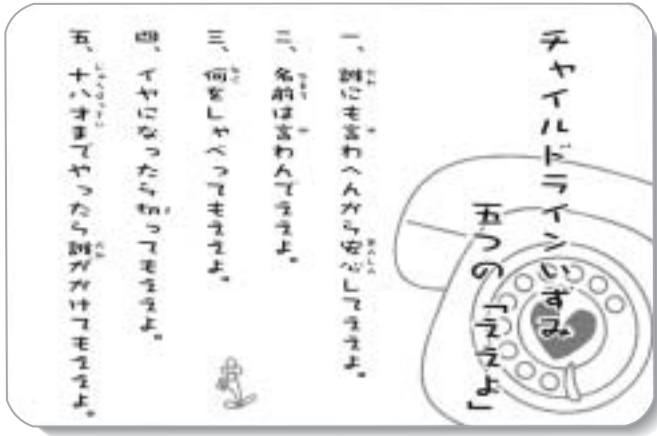 チャイルドラインいずみ
五つの「ええよ」
一、誰にも言わへんから安心してええよ。
二、名前は言わんでええよ。
三、何をしゃべってもええよ。
四、イヤになったら切ってもええよ。
五、十八才までやったら誰がかけてもええよ。